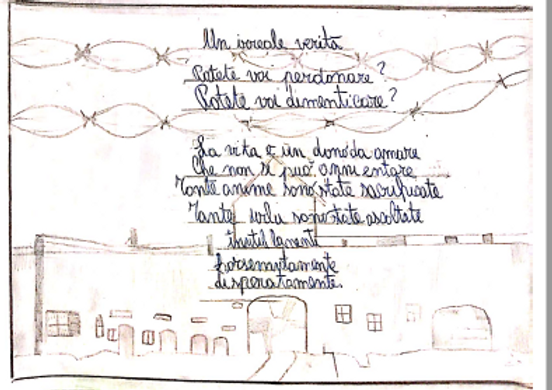 Un irreale verità
Potete voi perdonare?
Potete voi dimenticare?
La vita è un dono da amare
Che non si può
Tante anime sono state sacrificate
Tante urla sono state ascoltate
disperatamente.